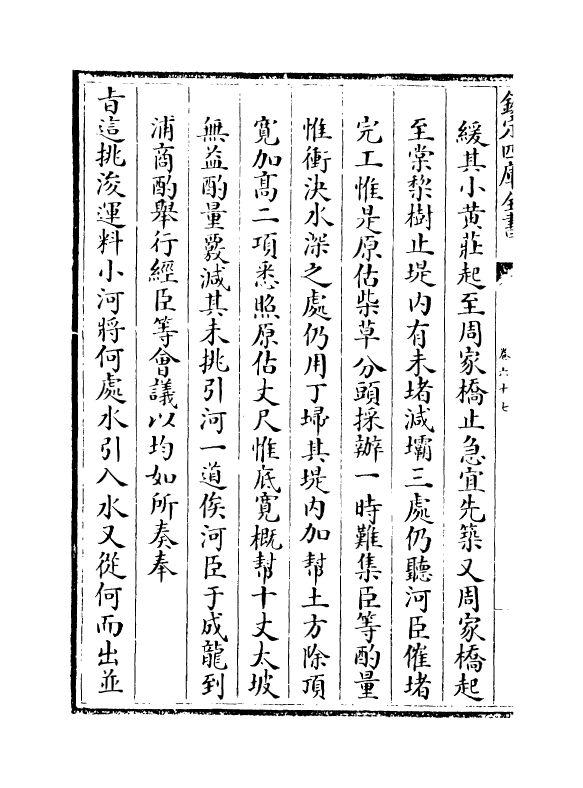 欽定四庫全書
卷六十七
緩其小黄莊起至周家橋止急宜先築又周家橋起
至棠梨樹止堤内有未堵減壩三處仍聽河臣催堵
完工惟是原估柴草分頭採辦一時難集臣等酌量
惟衝決水深之處仍用丁埽其堤内加幫土方除頂
寛加髙二項悉照原估丈尺惟底寛概幫十丈太坡
無益酌量覈減其未挑引河一道俟河臣于成龍到
浦商酌舉行經臣等會議以均如所奏奉
㫖這挑浚運料小河將何處水引入水又從何而出並